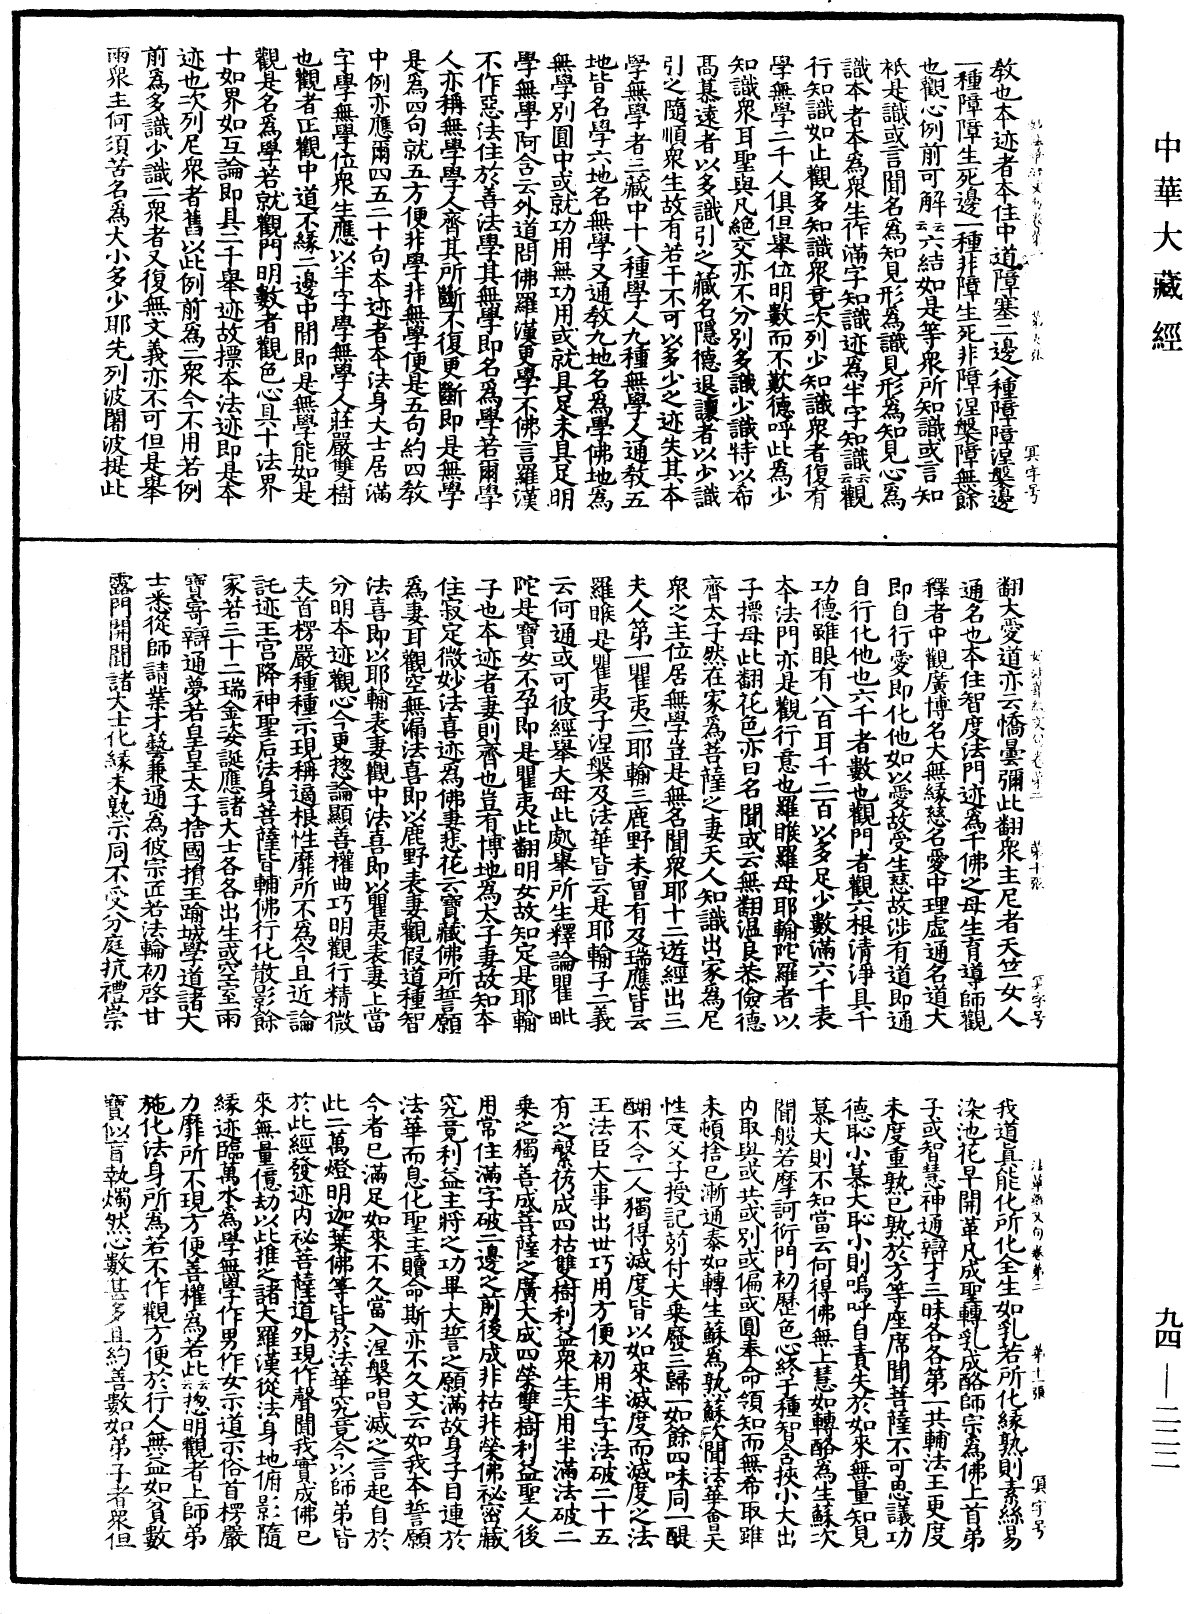 中華大藏經
九四—二二二
教也本迹者本住中道障塞二邊八種障障涅槃邊
一種障障生死邊一種非障生死非障涅槃障無餘
也觀心例前可解云云六結如是等衆所知識或言知
祇是識或言聞名為知見形為識見形為知見心為
識本者本為衆生作滿字知識迹為半字知識云云觀
行知識如止觀多知識衆竟次列少知識衆者復有
學無學二千人俱但舉位明數而不歎德呼此為少
知識衆耳聖與凡絕交亦不分別多識少識特以希
髙慕遠者以多識引之藏名隱德退讓者以少識
引之隨順衆生故有若干不可以多少之迹失其本
學無學者三藏中十八種學人九種無學人通教五
地皆名學六地名無學又通教九地名為學佛地為
無學別圓中或就功用無功用或就具足未具足明
學無學阿含云外道問佛羅漢更學不佛言羅漢
不作惡法住於善法學其無學即名為學若爾學
人亦稱無學學人齊其所斷不復更斷即是無學
是為四句就五方便非學非無學便是五句約四教
中例亦應爾四五二十句本迹者本法身大士居滿
字學無學位衆生應以半字學無學人莊嚴雙樹
也觀者正觀中道不緣二邊中間即是無學能如是
觀是名為學若就觀門明數者觀色心具十法界
十如界如互論即具二千舉迹故摽本法迹即是本
迹也次列尼衆者舊以此例前為二衆今不用若例
前為多識少識二衆者又復無文義亦不可但是舉
兩衆主何須苦名為大小多少耶先列波闍波提此
翻大愛道亦云憍曇彌此翻衆主尼者天竺女人
通名也本住智度法門迹為千佛之母生育導師觀
釋者中觀廣博名大無緣慈名愛中理虛通名道大
即自行愛即化他如以愛故受生慧故涉有道即通
自行化他也六千者數也觀門者觀六根清淨具千
功德雖眼有八百耳千二百以多足少數滿六千表
本法門亦是觀行意也羅睺羅母耶輸陀羅者以
子摽母此翻花色亦曰名聞或云無翻温良恭儉德
齊太子然在家為菩薩之妻天人知識出家為尼
衆之主位居無學豈是無名聞衆耶十二遊經出三
夫人第一瞿夷二耶輸三鹿野未曾有及瑞應皆云
羅睺是瞿夷子涅槃及法華皆云是耶輸子二義
云何通或可彼經舉大母此處舉所生釋論瞿毗
陀是寶女不孕即是瞿夷此翻明女故知定是耶輸
子也本迹者妻則齊也豈有博地為太子妻故知本
住寂定微妙法喜迹為佛妻悲花云寶藏佛所誓願
為妻耳觀空無漏法喜即以鹿野表妻觀假道種智
法喜即以耶輸表妻觀中法喜即以瞿夷表妻上當
分明本迹觀心今更惣論顯善權曲巧明觀行精微
夫首楞嚴種種示現稱適根性靡所不為今且近論
託迹王宫降神聖后法身菩薩皆輔佛行化散影餘
家若三十二瑞金姿誕應諸大士各各出生或空室雨
寶寄辯通夢若皇皇太子捨國擔王踰城學道諸大
士悉從師請業才藝兼通為彼宗匠若法輪初啓甘
露門開開諸大士化緣未熟示同不受分庭抗禮崇
我道真能化所化全生如乳若所化緣熟則素絲易
染池花早開革凡成聖轉乳成酪師宗為佛上首弟
子或智慧神通辯才三昧各各第一共輔法王更度
未度重熟已熟於方等座席聞菩薩不可思議功
德恥小慕大恥小則嗚呼自責失於如來無量知見
慕大則不知當云何得佛無上慧如轉酪為生蘇次
聞般若摩訶衍門初歷色心終于種智含挾小大出
內取與或共或別或偏或圓奉命領知而無希取雖
未頓捨已漸通泰如轉生蘇為熟蘇次聞法華會天
性定父子授記莂付大乘廢三歸一如餘四味同一醍
醐不令一人獨得滅度皆以如來滅度而滅度之法
王法臣大事出世巧用方便初用半字法破二十五
有之繁彷成四枯雙樹利益衆生次用半滿法破二
乘之獨善成菩薩之廣大成四榮雙樹利益聖人後
用常住滿字破二邊之前後成非枯非榮佛秘密藏
究竟利益主將之功畢大誓之願滿故身子目連於
法華而息化聖主贖命斯亦不久文云如我本誓願
今者已滿足如來不久當入涅槃唱滅之言起自於
此二萬燈明迦葉佛等皆於法華究竟今以師弟皆
於此經發迹內祕菩薩道外現作聲聞我實成佛已
來無量億劫以此推之諸大羅漢從法身地俯影隨
緣迹臨萬水為學無學作男作女示道示俗首楞嚴
力靡所不現方便善權為若此云云惣明觀者上師弟
施化法身所為若不作觀方便於行人無益如貧數
寶似盲執燭然心數甚多且約善數如弟子者衆但